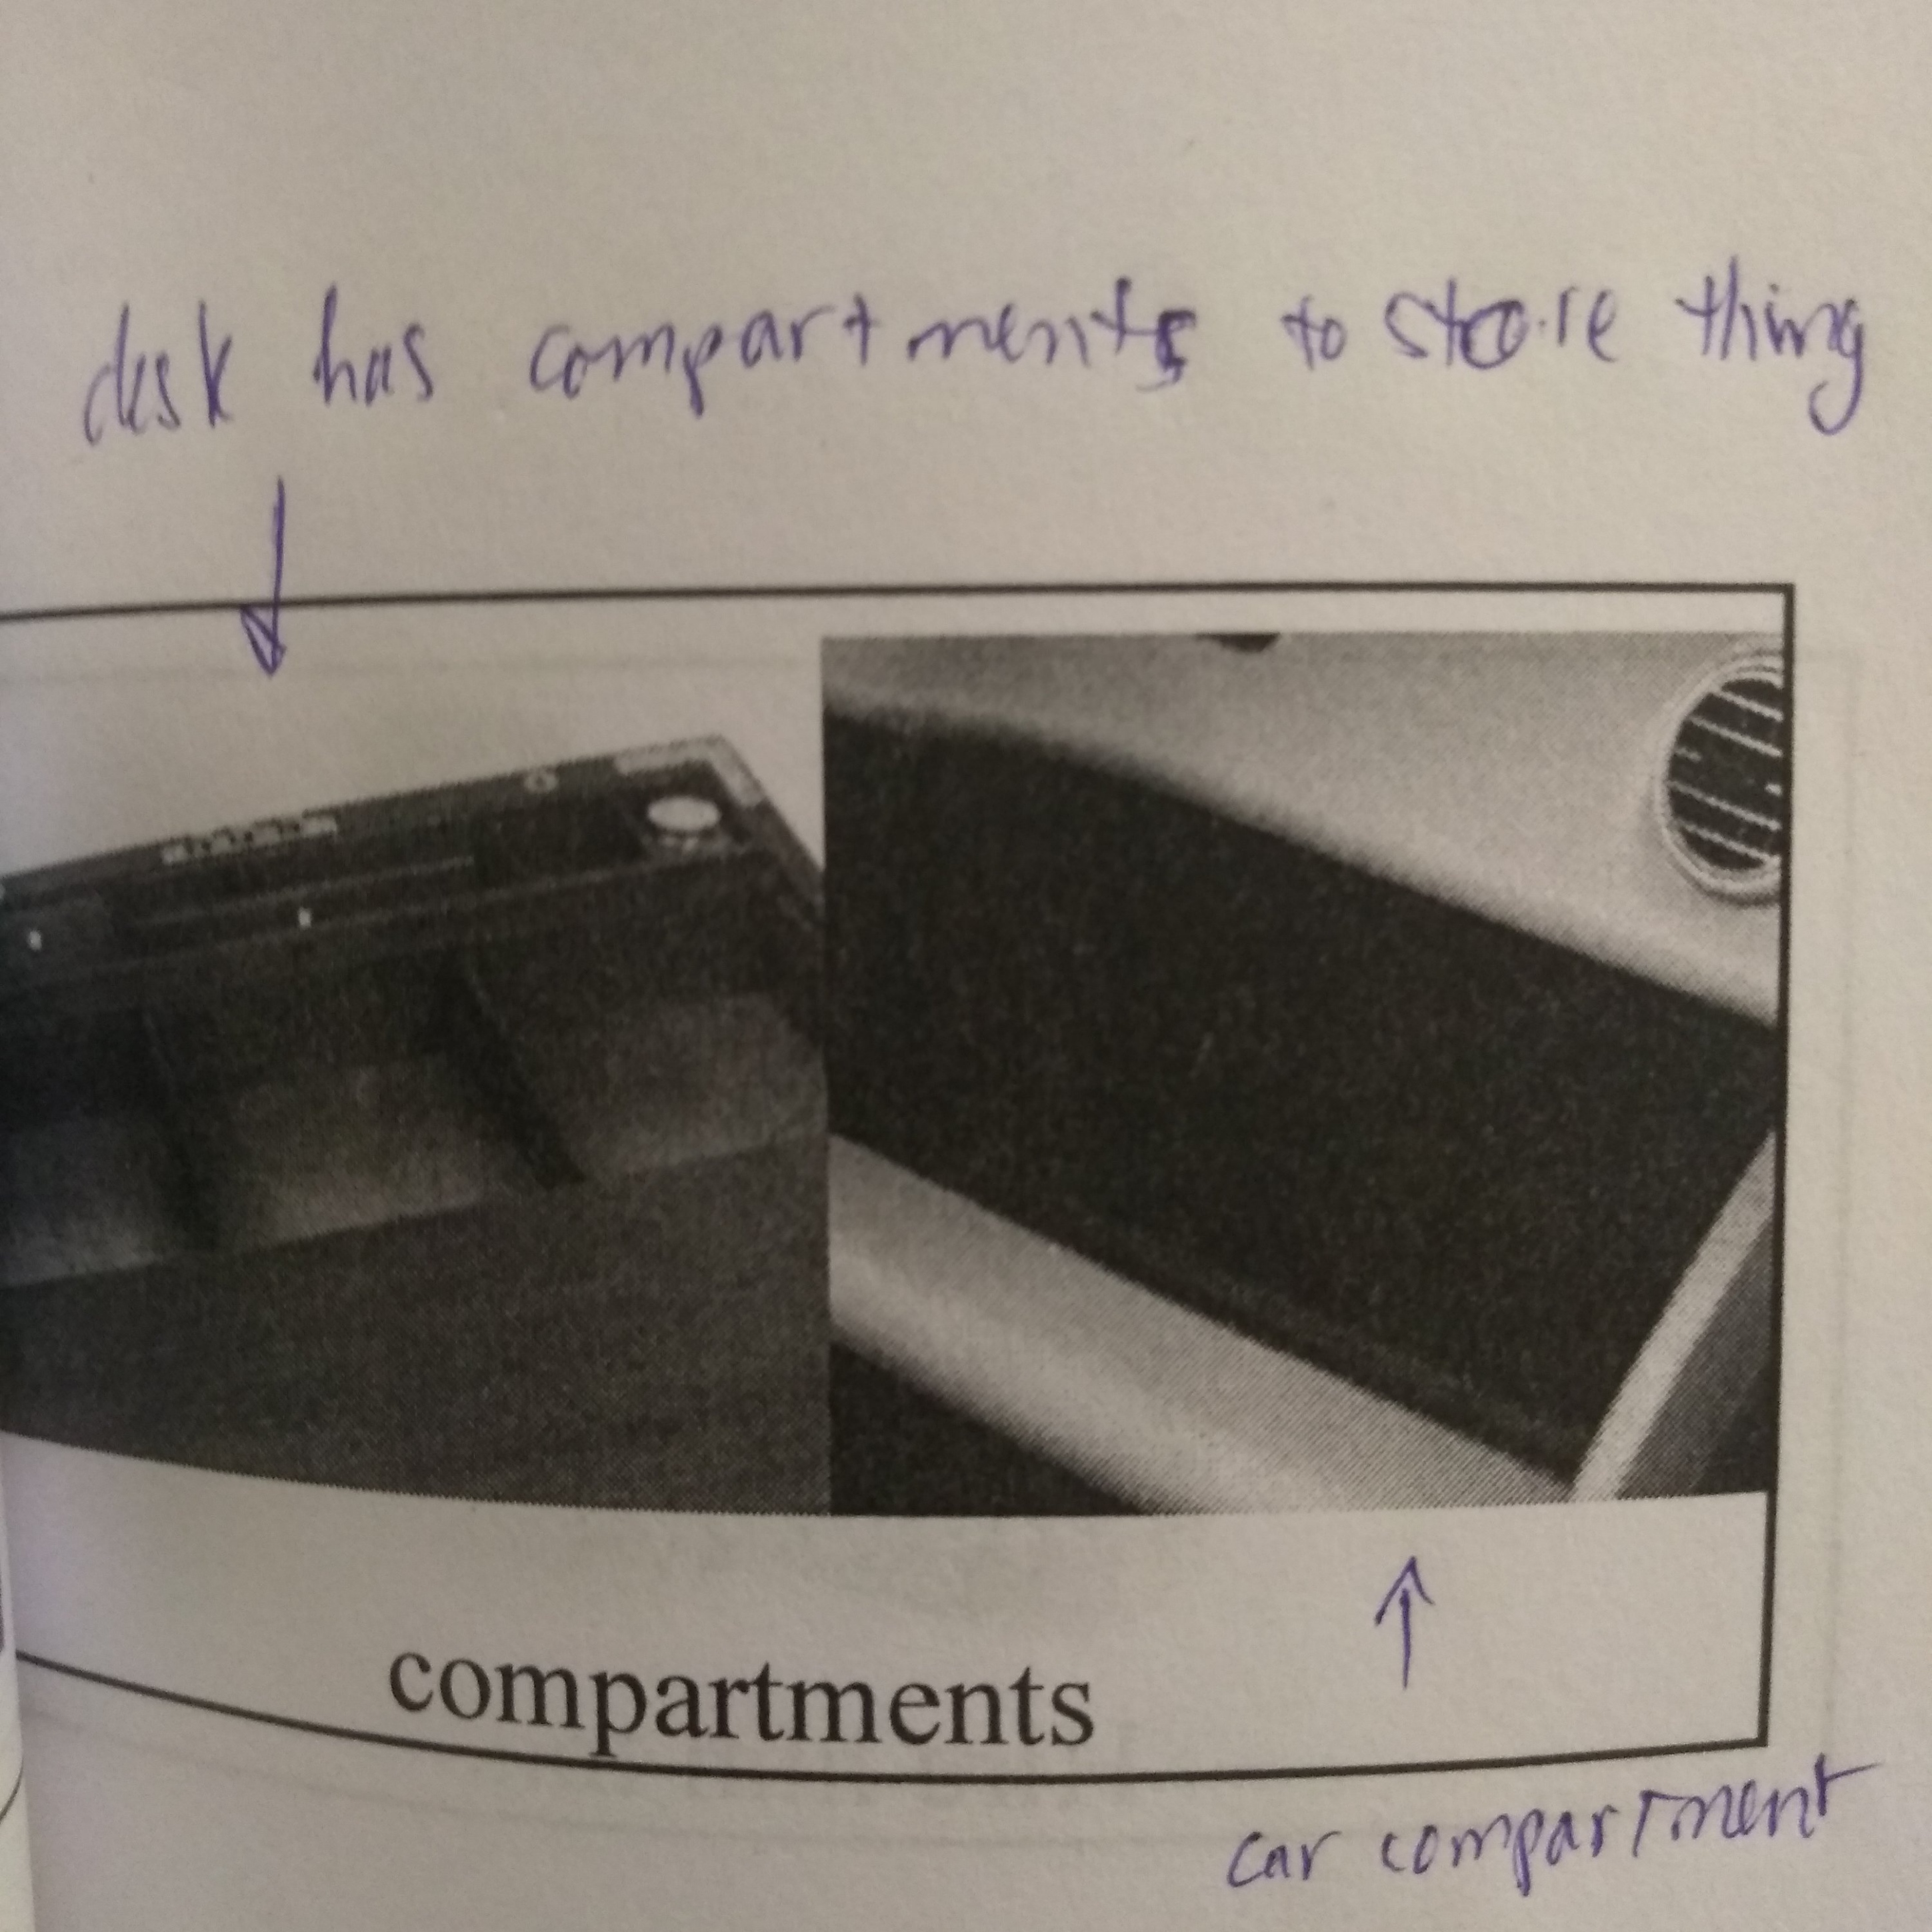 desk has compartments to store thing
compartments
car compartment